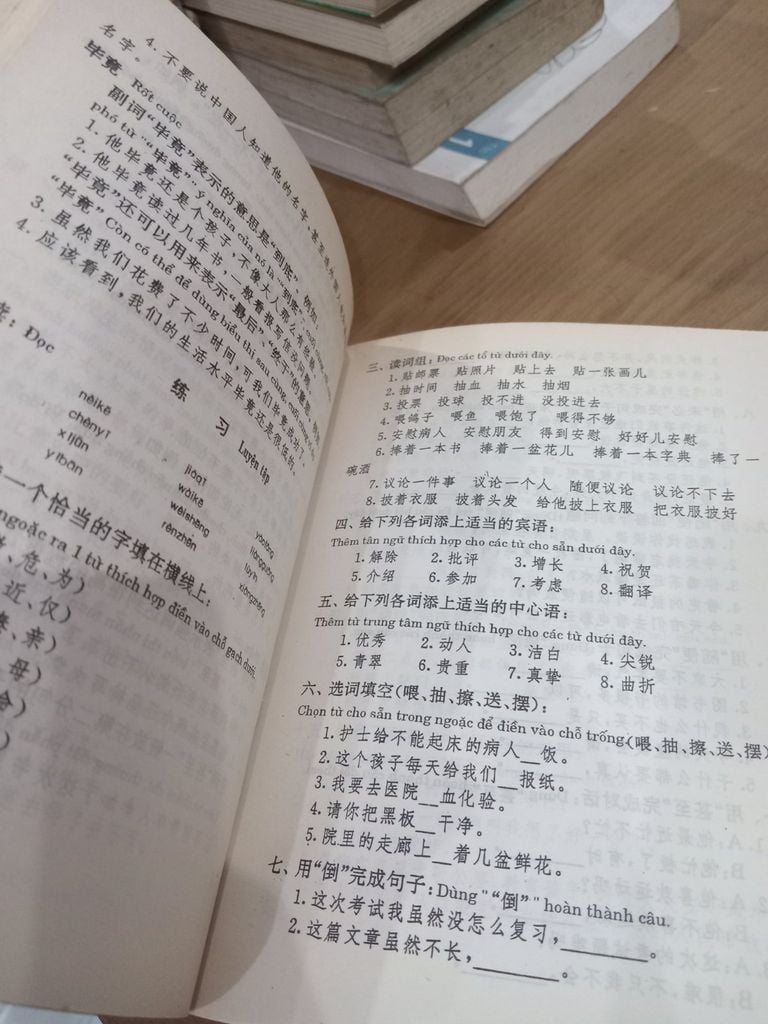 4. 不要说中国人知道他的名字，甚至连外国人
名字。
毕竟 Rốt cuộc
副词“毕竟”表示的意思是“到底”，例如：
phó từ "“毕竟”" ý nghĩa của nó là "“到底”"
1. 他毕竟还是个孩子，不像大人那么有经验。
2. 他毕竟读过几年书，一般看报写信没问题。
“毕竟”还可以用来表示“最后”、“终于”的意思，例如
"毕竟" Còn có thể để dùng biểu thị sau cùng, cuối cùng
3. 虽然我们花费了不少时间，可我们毕竟成功了。
4. 应该看到，我们的生活水平毕竟还是很低的。
练 习 Luyện tập
: Đọc
nèikē jiāoqì
chényī wàikē yāolǐng
xīfān wèishēng liángpiào
yībān rénzhēn xióngzhēng
一个恰当的字填在横线上：
ngoặc ra 1 từ thích hợp điền vào chỗ gạch dưới.
、危、为）
近、仅）
、亲）
母）
）
三、读词组：Đọc các tổ từ dưới đây.
1. 贴邮票 贴照片 贴上去 贴一张画儿
2. 抽时间 抽血 抽水 抽烟
3. 投票 投球 投不进 没投进去
4. 喂鸽子 喂鱼 喂饱了 喂得不够
5. 安慰病人 安慰朋友 得到安慰 好好儿安慰
6. 捧着一本书 捧着一盆花儿 捧着一本字典 捧了一
碗酒
7. 议论一件事 议论一个人 随便议论 议论不下去
8. 披着衣服 披着头发 给他披上衣服 把衣服披好
四、给下列各词添上适当的宾语：
Thêm tân ngữ thích hợp cho các từ cho sẵn dưới đây.
1. 解除 2. 批评 3. 增长 4. 祝贺
5. 介绍 6. 参加 7. 考虑 8. 翻译
五、给下列各词添上适当的中心语：
Thêm từ trung tâm ngữ thích hợp cho các từ dưới đây.
1. 优秀 2. 动人 3. 洁白 4. 尖锐
5. 青翠 6. 贵重 7. 真挚 8. 曲折
六、选词填空（喂、抽、擦、送、摆）：
Chọn từ cho sẵn trong ngoặc để điền vào chỗ trống（喂、抽、擦、送、摆）
1. 护士给不能起床的病人__饭。
2. 这个孩子每天给我们__报纸。
3. 我要去医院__血化验。
4. 请你把黑板__干净。
5. 院里的走廊上__着几盆鲜花。
七、用“倒”完成句子：Dùng "“倒”" hoàn thành câu.
1. 这次考试我虽然没怎么复习，________。
2. 这篇文章虽然不长，________。